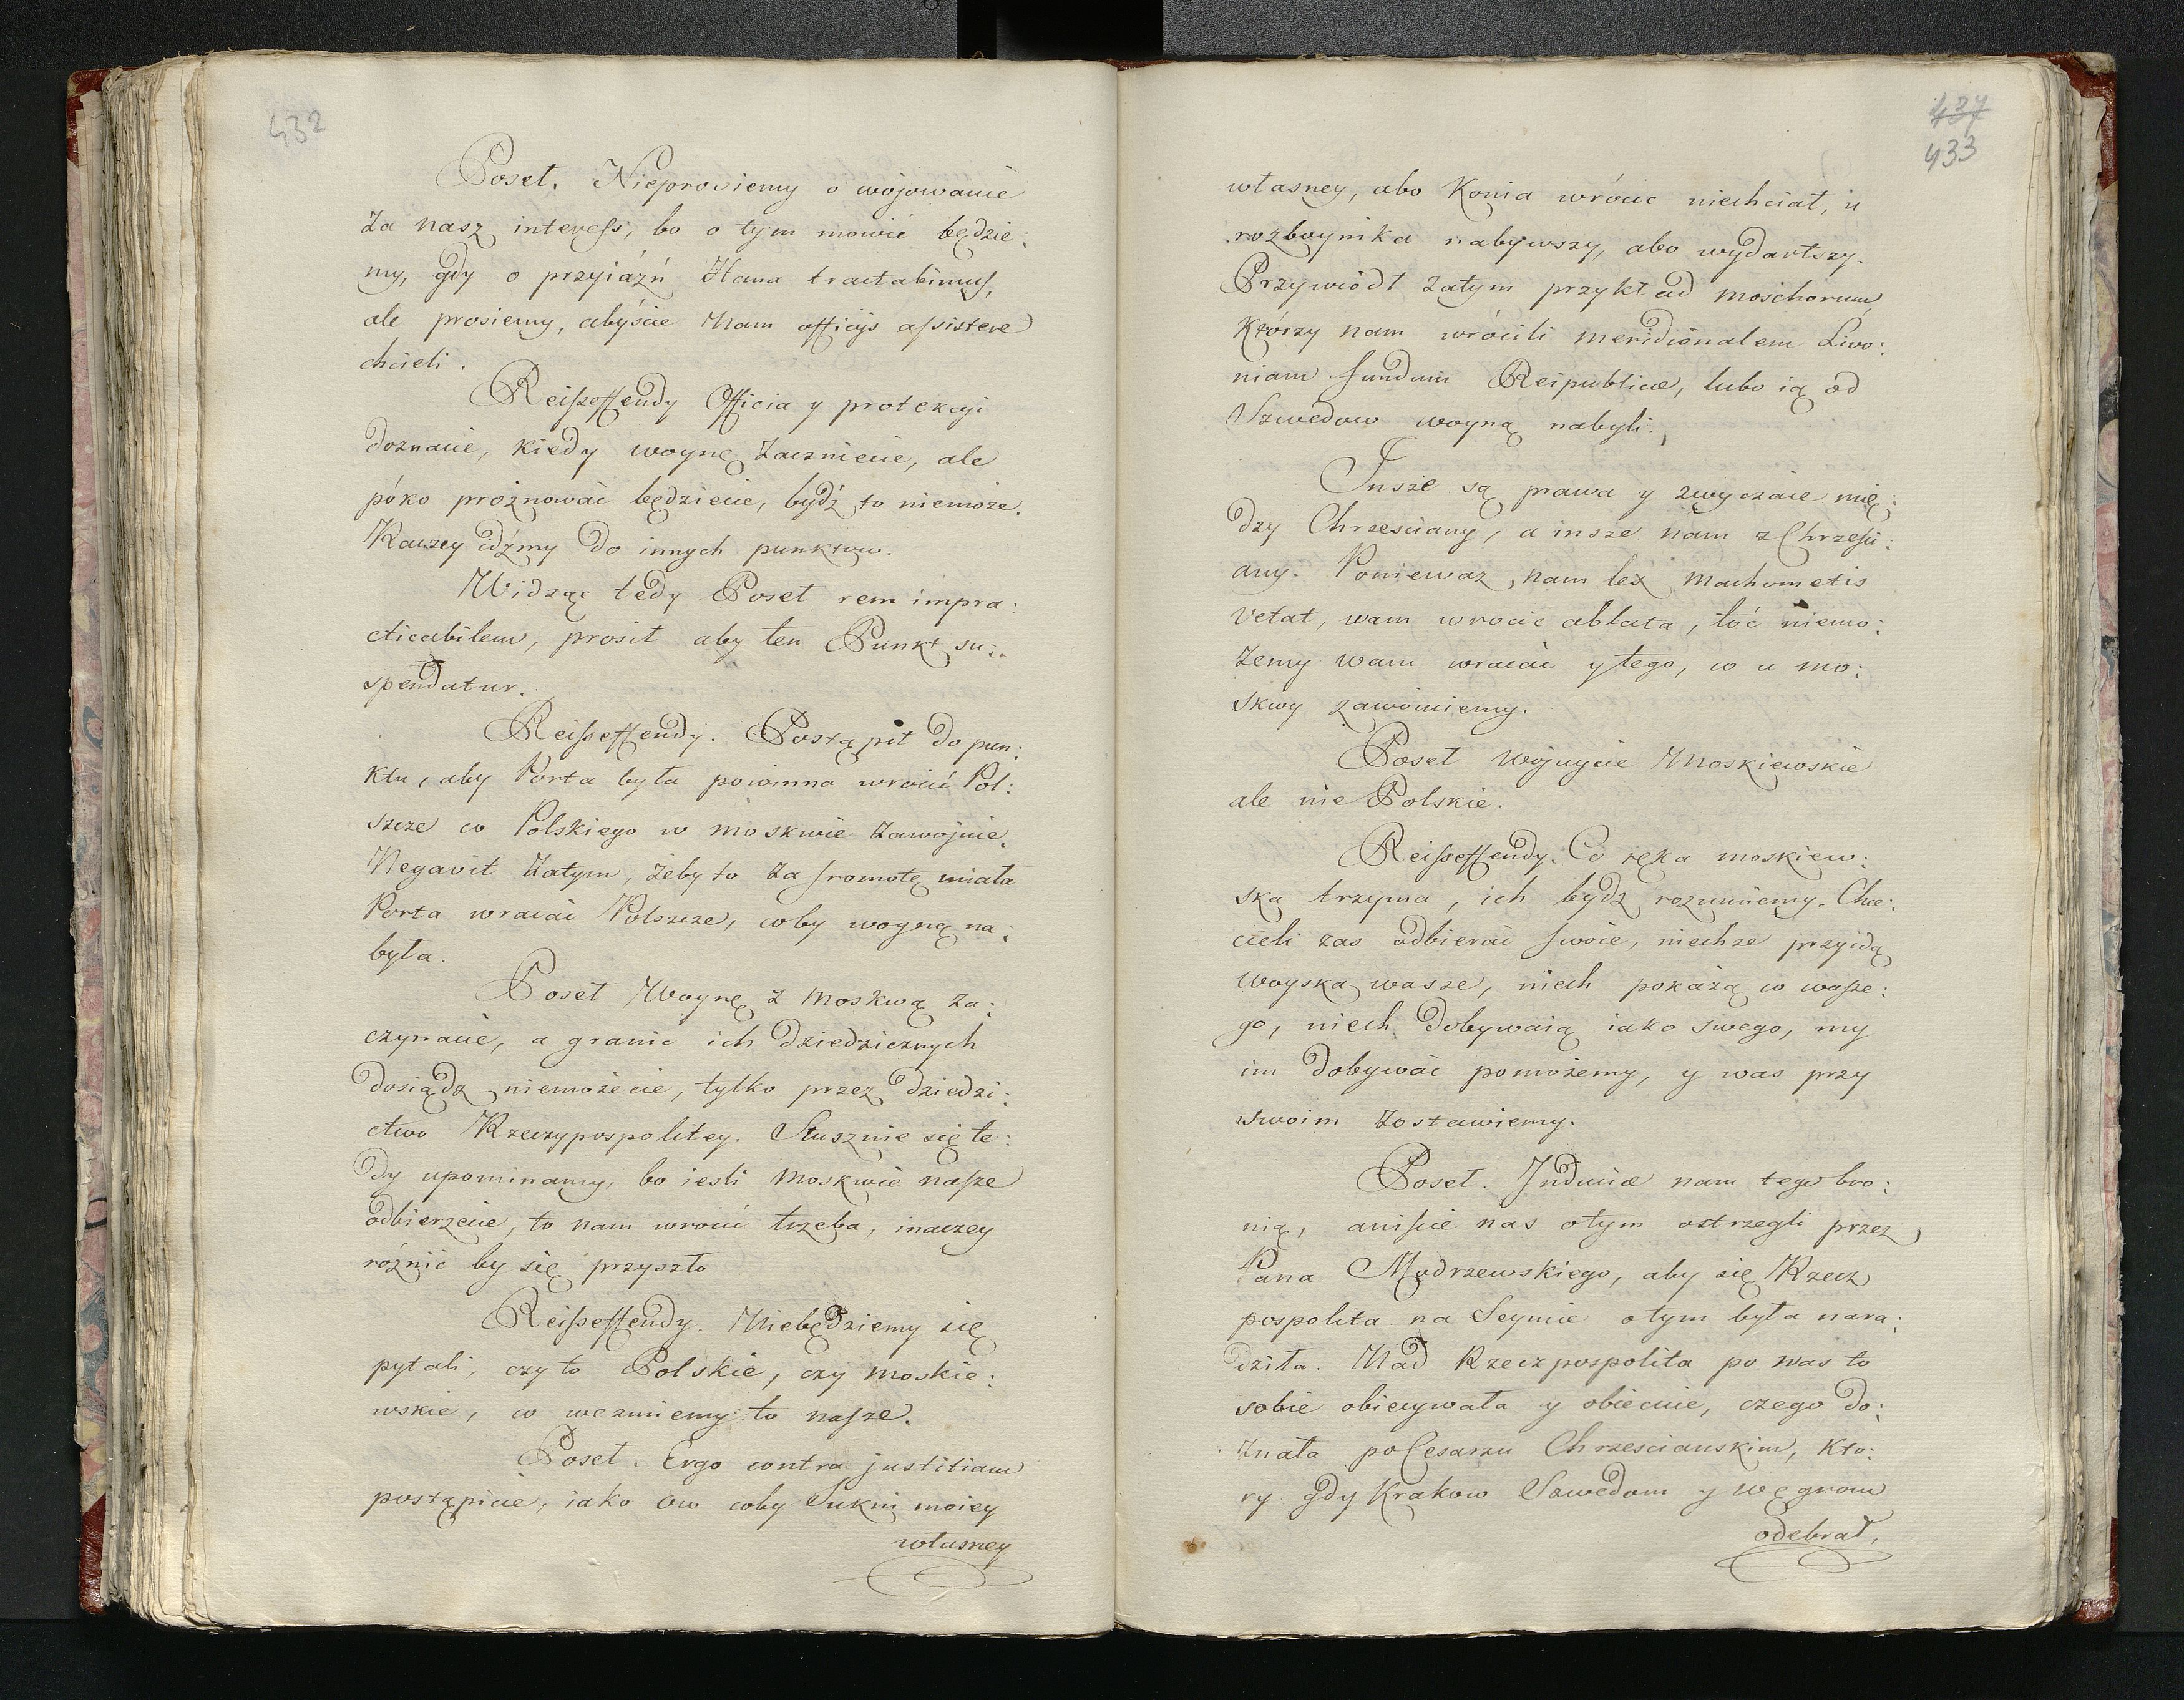 432
Poseł. Nieprosiemy o wojowanie
za nasz interess, bo o tym mowić będzie:
my, gdy o przyiáźń Hana tractabimus,
ale prosiemy, abyście Nam officijs assistere
chcieli.
Reisseffendy Officia y protekcyi
doznacie, kiedy woynę zaczniecie, ale
póko próżnować będziecie, bydź to niemoże.
Raczey idźmy do innych punktow.
Widząc tedy Poseł rem impra:
cticabilem, prosił aby ten Punkt su:
spendatur.
Reisseffendy. Postąpił do pun:
ktu, aby Porta była powinna wrócić Pol:
szcze co Polskiego w moskwie zawojuie.
Negavit zatym, żeby to za sromotę miała
Porta wracać Polszcze, coby woyną na:
była.
Poseł Woynę z Moskwą za:
czynacie, a granic ich dziedzicznych
dosiądz niemożecie, tylko przez dziedzi:
ctwo Rzeczypospolitey. Słusznie się te:
dy upominamy, bo iesli Moskwie nasze
odbierzecie, to nam wrócić trzeba, inaczey
różnić by się przyszło
Reisseffendy. Niebędziemy się
pytali, czy to Polskie, czy moskie:
wskie, co wezmiemy to nasze.
Poseł. Ergo contra justitiam
postąpicie, iako ów coby Sukni moiey
własney
437
433
własney, abo Konia wrócic niechciał, u
rozboynika nabywszy, abo wydartszy.
Przywiódł zatym przykład moschorum,
Którzy nam wrócili meridionalem Livo:
niam fundum Reipublicæ, lubo ią od
Szwedow woyną nabyli.
Insze są prawa y zwyczaie mię:
dzy Chrzesciany, a insze nam z Chrzesci:
any. Poniewaz nam lex Machometis
vetat, wam wrocic ablata, toć niemo:
żemy wam wracać y tego, co u mo:
skwy zawoiuiemy.
Poseł Wójuycie Moskiewskie
ale nie Polskie.
Reisseffendy. Co ręka moskiew:
ska trzyma, ich bydz rozumiemy. Chce:
cieli zas odbierać swoie, niechze przyidą
woyska wasze, niech pokażą co wasze:
go, niech dobywaią iako swego, my
im dobywać pomożemy, y was przy
swoim zostawiemy.
Poseł. Induciæ nam tego bro:
nią, aniście nas o tym ostrzegli przez
Pana Modrzewskiego, aby się Rzecz
pospolita na Seymie o tym była nara:
dziła. Nad Rzeczpospolita po was to
sobie obiecywała y obiecuie, czego do:
znała po Cesarzu Chrzescianskim, kto:
ry gdy Krakow Szwedom y węgrom
odebrał,